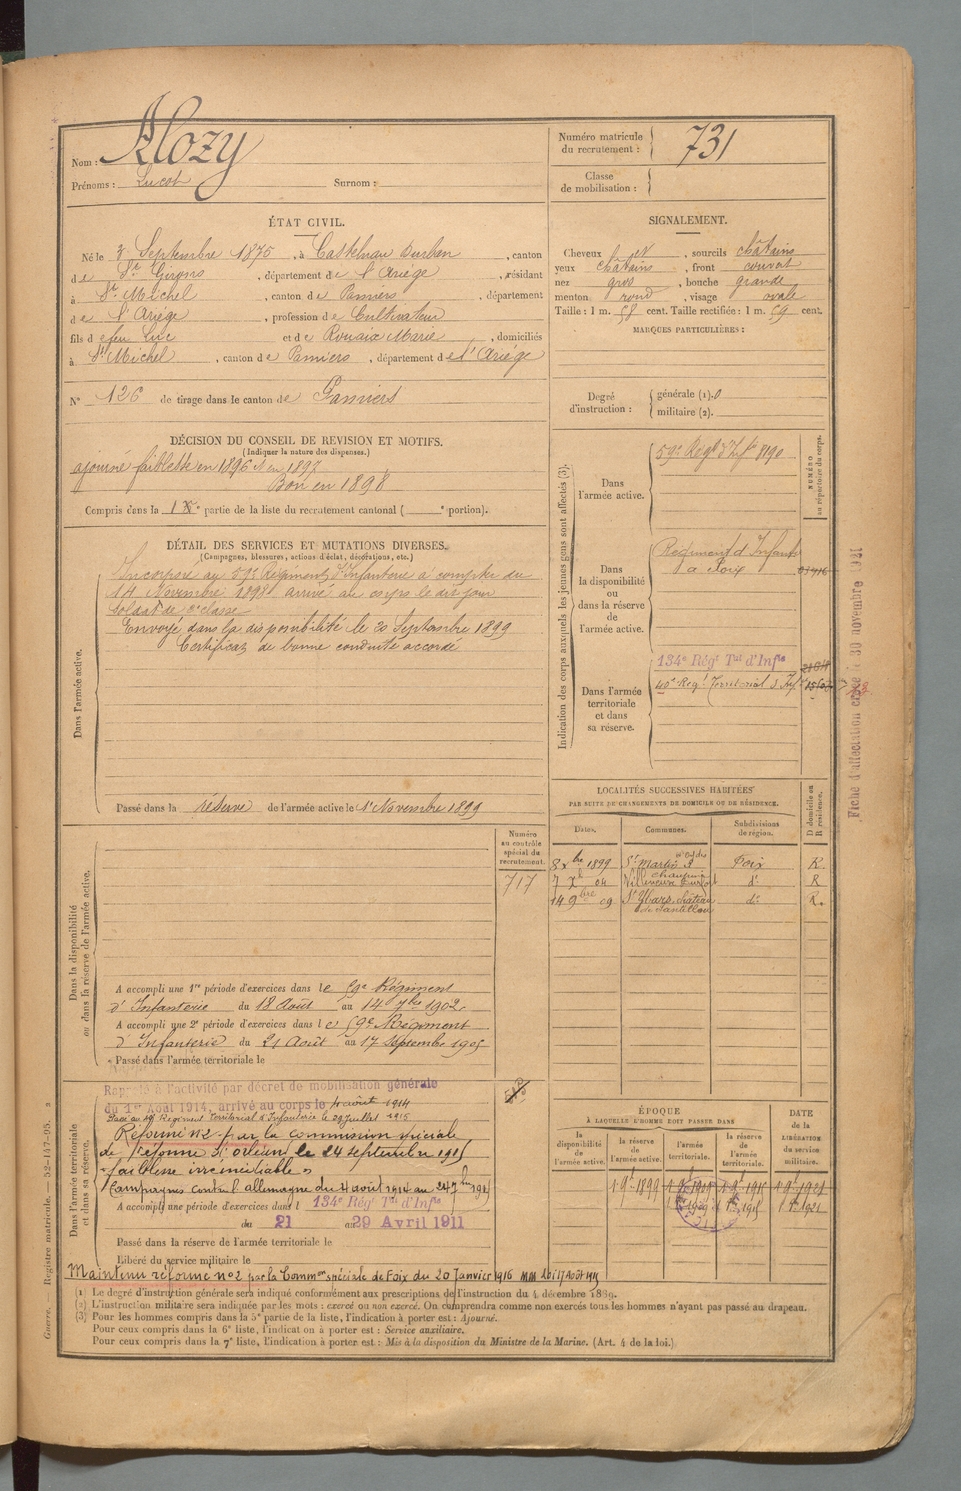 Nom : Alozy
Prénoms : Lucol Surnom :
Numéro matricule du recrutement : 731
Classe de mobilisation :
ÉTAT CIVIL.
Né le 3 Septembre 1875, à Castelnau Durban, canton
de St Girons, département de l'Ariège, résidant
à St Michel, canton de Pamiers, département
de l'Ariège, profession de Cultivateur
fils de feu Luc et de Rouaix Marie, domiciliés
à St Michel, canton de Pamiers, département de l'Ariège
N° 126 de tirage dans le canton de Pamiers
SIGNALEMENT.
Cheveux et, sourcils châtains
yeux châtains, front couvert
nez gros, bouche grande
menton rond, visage ovale
Taille : 1 m. 58 cent. Taille rectifiée : 1 m. 59 cent.
MARQUES PARTICULIÈRES :
Degré d'instruction : générale (1). 0
militaire (2).
DÉCISION DU CONSEIL DE REVISION ET MOTIFS.
(Indiquer la nature des dispenses.)
ajourné faiblesse en 1896 et en 1897
Bon en 1898
Compris dans la 1re partie de la liste du recrutement cantonal ( e portion).
DÉTAIL DES SERVICES ET MUTATIONS DIVERSES.
(Campagnes, blessures, actions d'éclat, décorations, etc.)
Dans l'armée active.
Incorporé au 59e Régiment d'Infanterie à compter du
14 Novembre 1898 arrivé au corps le dit jour
soldat de 2e classe
Envoyé dans la disponibilité le 20 Septembre 1899
Certificat de bonne conduite accordé
Passé dans la réserve de l'armée active le 1er Novembre 1899
Indication des corps auxquels les jeunes gens sont affectés (3).
NUMÉRO au répertoire du corps.
Dans l'armée active.
59e Régt d'Infie 8190
Dans la disponibilité ou dans la réserve de l'armée active.
Régiment d'Infante
à Foix
Dans l'armée territoriale et dans sa réserve.
134e Régt Tal d'Infie
40e Regt Territorial d'Infie
Fiche d'affectation créée le 30 novembre 1921
LOCALITÉS SUCCESSIVES HABITÉES
PAR SUITE DE CHANGEMENTS DE DOMICILE OU DE RÉSIDENCE.
Dates. Communes. Subdivisions de région. D domicile ou R résidence.
8 xbre 1899 St Martin d'Oydes Foix R
04 Villeneuve Durfort do R
14 9bre 09 St Ybars château de do R.
Dans la disponibilité ou dans la réserve de l'armée active.
Numéro au contrôle spécial du recrutement.
717
A accompli une 1re période d'exercices dans le 59e Régiment
d'Infanterie du 18 Août au 14 7bre 1902
A accompli une 2e période d'exercices dans le 59e Régiment
d'Infanterie du 21 Août au 17 Septembre 1905
Passé dans l'armée territoriale le
Dans l'armée territoriale et dans sa réserve.
Rappelé à l'activité par décret de mobilisation générale
du 1er Août 1914, arrivé au corps le 4 août 1914
Passé au 40e Régiment Territorial d'Infanterie le 29 Juillet 1915
Réformé n°2 par la commission spéciale
de réforme d'Orléans le 24 septembre 1915
"faiblesse irrémédiable"
Campagnes contre l'allemagne du 4 août 1914 au 24 7bre 1915
A accompli une période d'exercices dans l 134e Régt Tal d'Infie
du 21 au 29 Avril 1911
Passé dans la réserve de l'armée territoriale le
Libéré du service militaire le
Maintenu réformé n°2 par la Common spéciale de Foix du 20 Janvier 1916 loi 17 Août 1915
ÉPOQUE
À LAQUELLE L'HOMME DOIT PASSER DANS
la disponibilité de l'armée active.
la réserve de l'armée active.
l'armée territoriale.
la réserve de l'armée territoriale.
DATE de la LIBÉRATION du service militaire.
(1) Le degré d'instruction générale sera indiqué conformément aux prescriptions de l'instruction du 4 décembre 1889.
(2) L'instruction militaire sera indiquée par les mots : exercé ou non exercé. On comprendra comme non exercés tous les hommes n'ayant pas passé au drapeau.
(3) Pour les hommes compris dans la 5e partie de la liste, l'indication à porter est : Ajourné.
Pour ceux compris dans la 6e liste, l'indication à porter est : Service auxiliaire.
Pour ceux compris dans la 7e liste, l'indication à porter est : Mis à la disposition du Ministre de la Marine. (Art. 4 de la loi.)
Guerre. — Registre matricule. — 52-147-95.